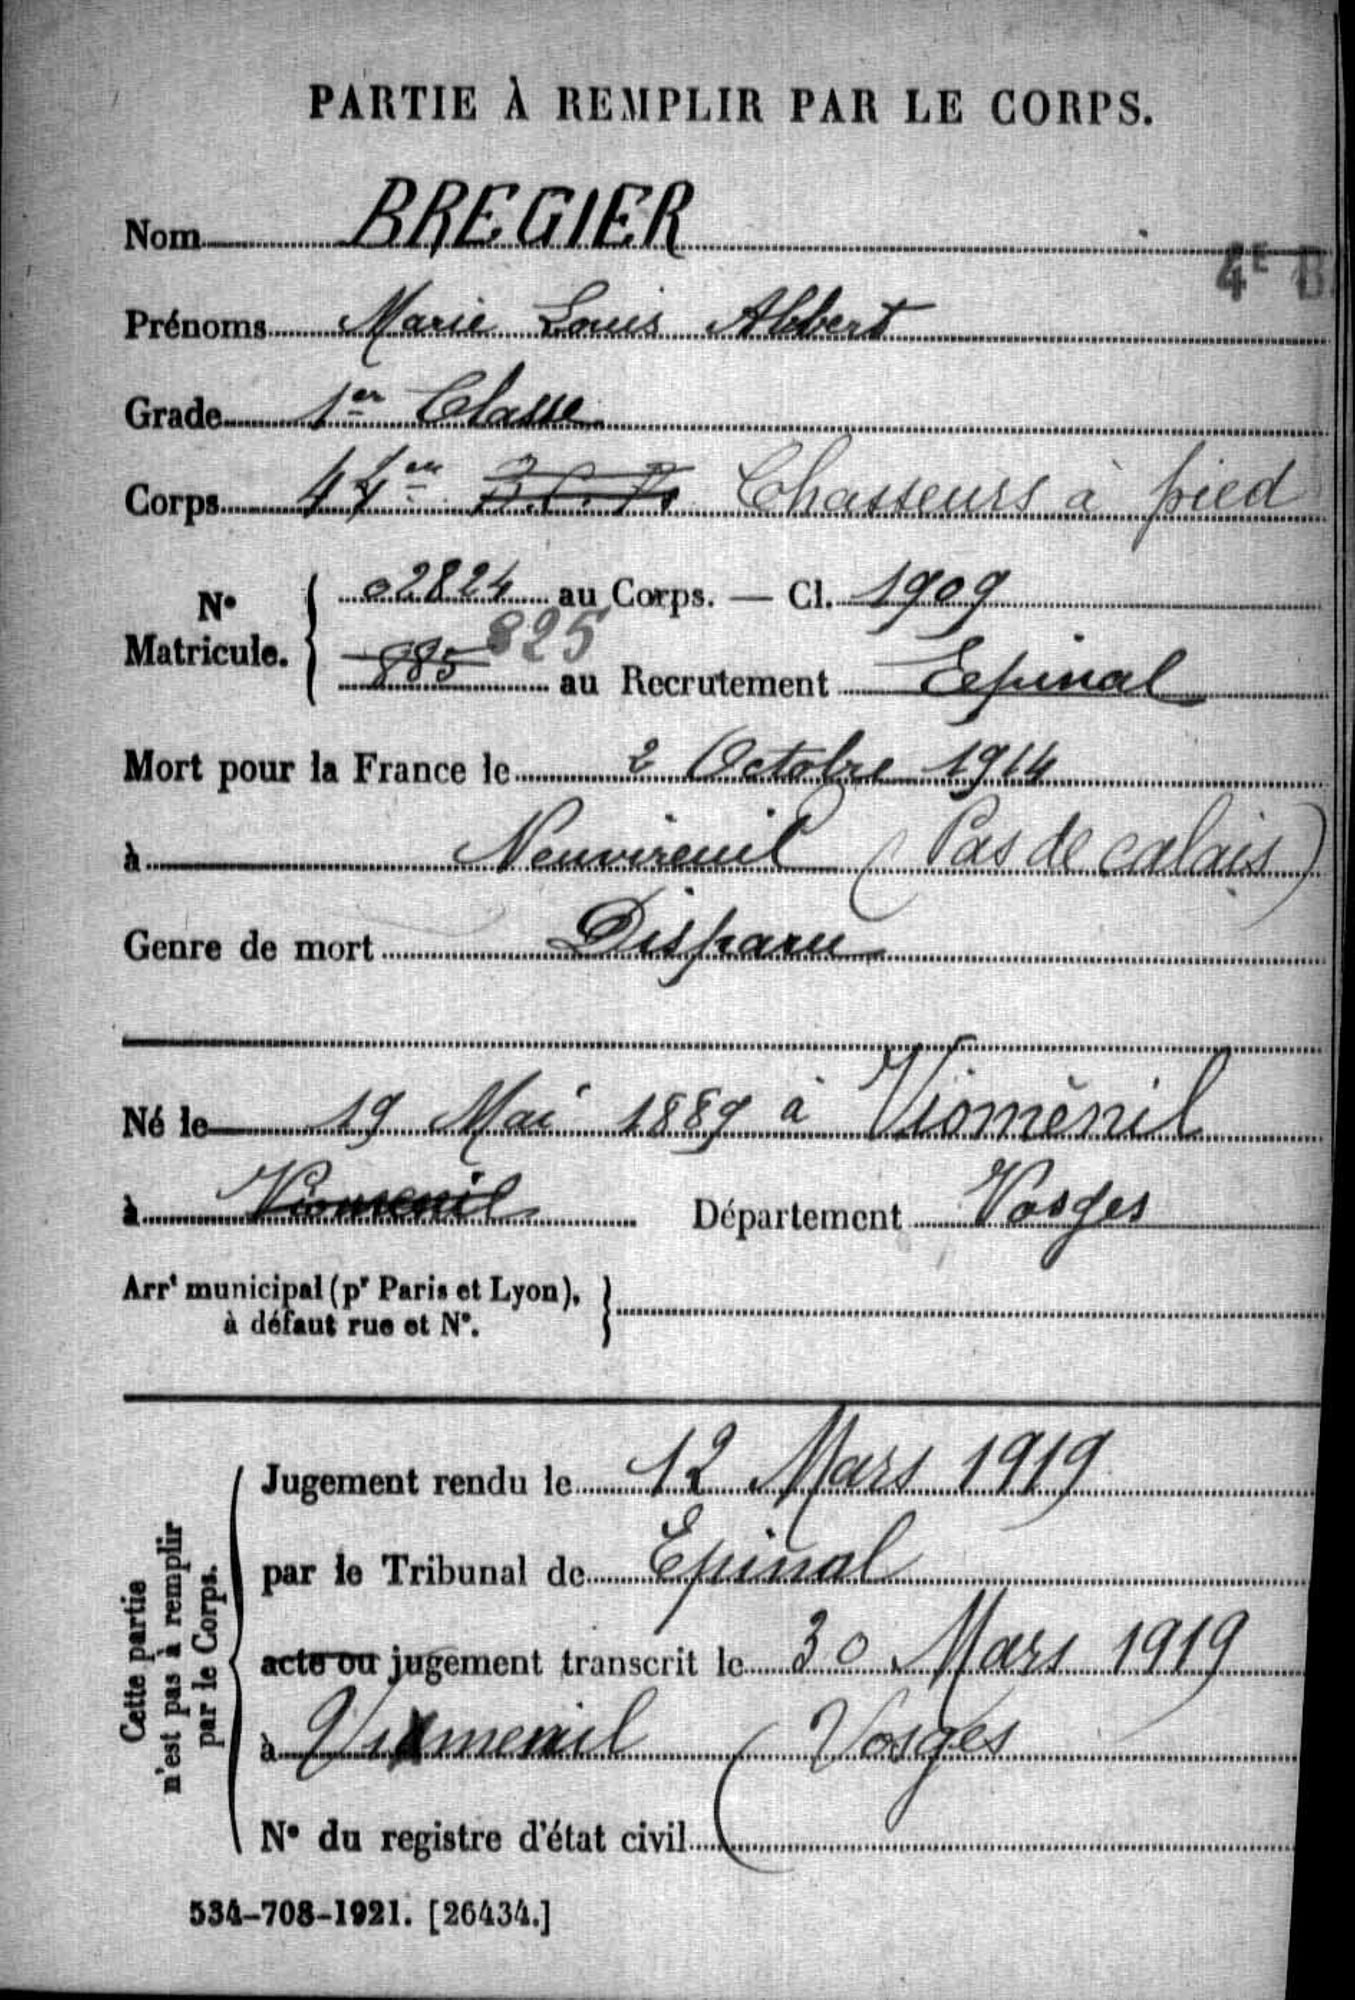 PARTIE À REMPLIR PAR LE CORPS.
Nom BREGIER
4E B
Prénoms Marie Louis Albert
Grade 1er Classe
Corps 44em B.C.P. Chasseurs à pied
N° Matricule. 02824 au Corps. — Cl. 1909
885 825 au Recrutement Epinal
Mort pour la France le 2 Octobre 1914
à Neuvireuil (Pas de calais)
Genre de mort Disparu
Né le 19 Mai 1889 à Vioménil
à Viomenil Département Vosges
Arrt municipal (pr Paris et Lyon),
à défaut rue et N°.
Cette partie
n'est pas à remplir
par le Corps.
Jugement rendu le 12 Mars 1919
par le Tribunal de Epinal
acte ou jugement transcrit le 30 Mars 1919
à Viomenil (Vosges
N° du registre d'état civil
534-708-1921. [26434.]